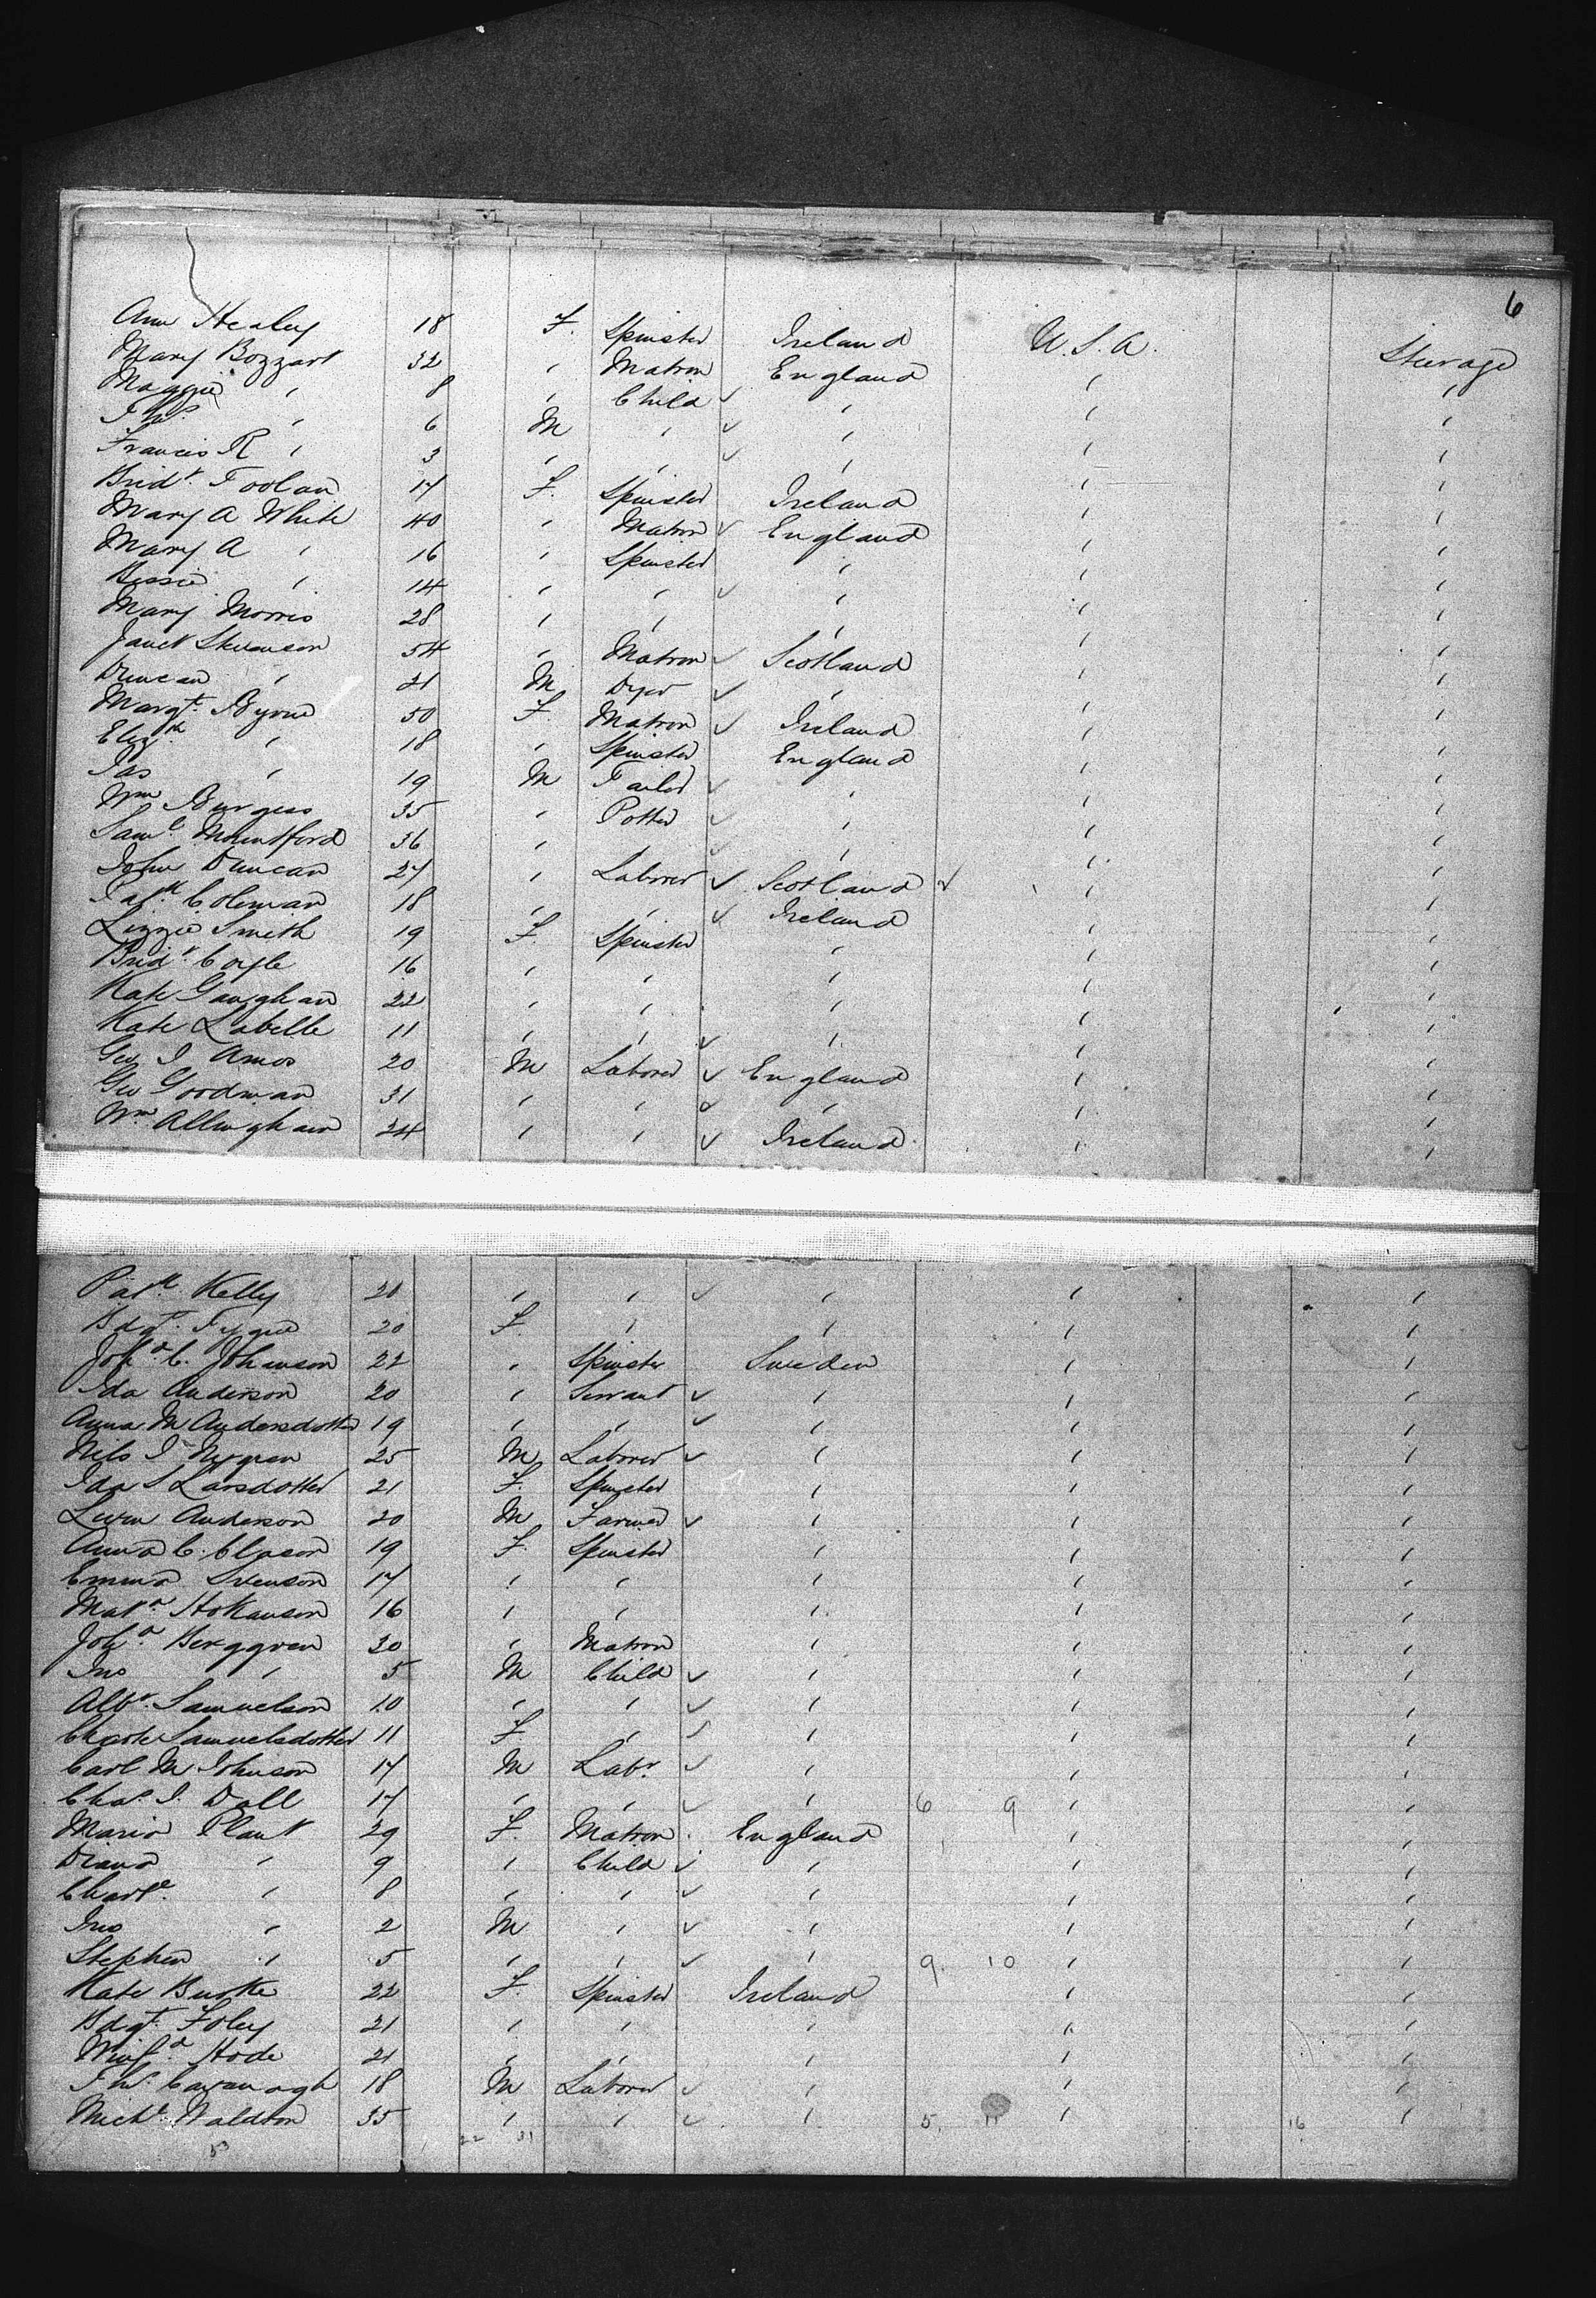 6
Ann Healey 18 F. Spinster Ireland U.S.A. Steerage
Mary Bozzart 32 " Matron England " "
Maggie " 8 " Child " " "
Thos " 6 M " " " "
Francis R " 3 " " " " "
Bridt. Foolan 17 F. Spinster Ireland " "
Mary A White 40 " Matron England " "
Mary A " 16 " Spinster " " "
Bessie " 14 " " " " "
Mary Morris 28 " " " " "
Janet Stevenson 54 " Matron Scotland " "
Duncan " 21 M Dyer " " "
Margt. Byrne 50 F. Matron Ireland " "
Elizth " 18 " Spinster England " "
Jas " 19 M Tailor " " "
Wm Burgess 35 " Potter " " "
Saml. Mountford 36 " " " "
John Duncan 27 " Laborer Scotland " "
Patk. Coleman 18 " " Ireland " "
Lizzie Smith 19 F. Spinster " " "
Bridt. Coyle 16 " " " " "
Kate Gaughan 22 " " " " "
Kate Labelle 11 " " " " "
Geo J Amos 20 M Laborer England " "
Geo Goodman 31 " " " " "
Wm. Allingham 24 " " Ireland " "
Patk. Kelly 20 " " " " "
Bdgt. 20 F. " " " "
Joha. C. Johanson 22 " Spinster Sweden " "
Ida Anderson 20 " Servant " " "
Anna M Andersdotter 19 " " " " "
Nels J Nygren 25 M Laborer " " "
Ida S Larsdotter 21 F. Spinster " " "
Anderson 20 M Farmer " " "
Anna C. Clason 19 F. Spinster " " "
Emma Svenson 17 " " " " "
Mata. Hokanson 16 " " " " "
Joha. Berggren 30 " Matron " " "
Jno " 5 M Child " " "
Albt. Samuelson 10 " " " " "
Samuelsdotter 11 F. " " " "
Carl M Johnson 17 M Labr. " " "
Chas. J. Dall 17 " " " 6 9 " "
Maria Plant 29 F. Matron England " "
Diana " 9 " Child " " "
Charle. " 8 " " " " "
Jno " 2 M " " " "
Stephen " 5 " " " 9. 10 " "
Kate Burke 22 F. Spinster Ireland " "
Bdgt. Foley 21 " " " " "
Winfd. Hode 21 " " " " "
Thos. Cavanagh 18 M Laborer " " "
Michl. Waldron 35 " " " 5. 11 " 16 "
53 22 31